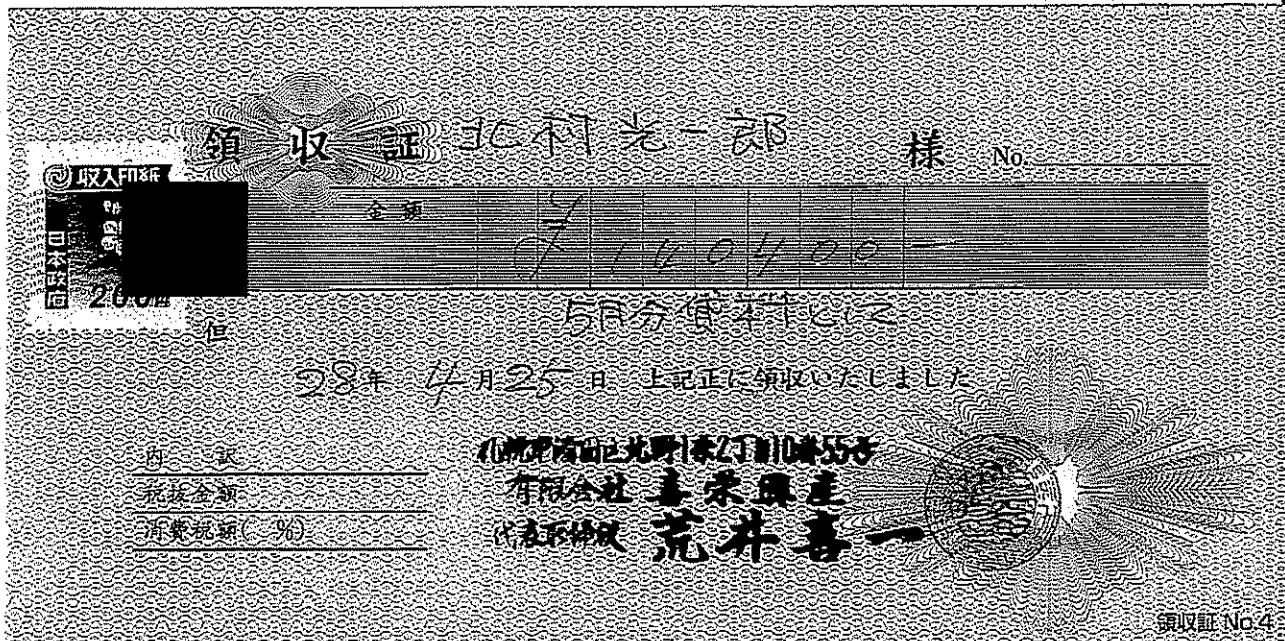 領収証 北村光一郎 様 No.
収入印紙
日本政府
200
金額 ¥140400-
但 5月分賃料として
28年 4月25日 上記正に領収いたしました
内訳
税抜金額
消費税額( %)
札幌市清田区北野1条2丁目10番55号
有限会社 喜栄興産
代表取締役 荒井喜一
領収証 No.4